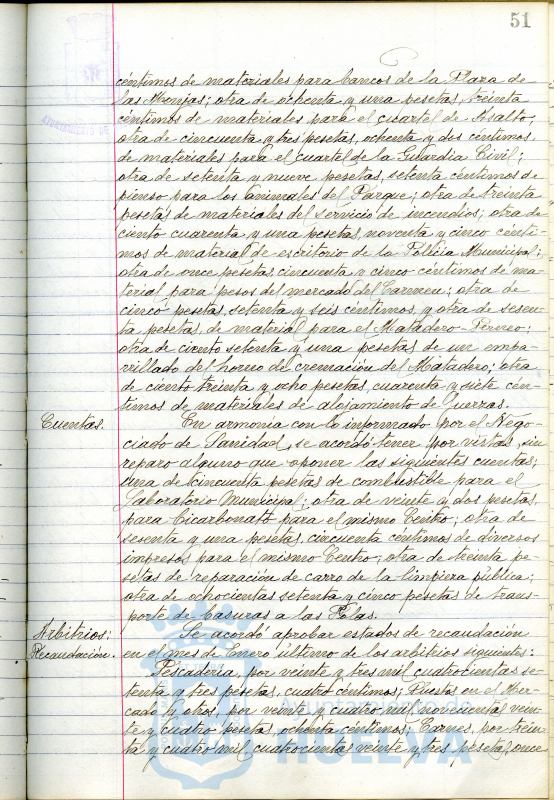 51
céntimos de materiales para bancos de la Plaza de
las Monjas; otra de ochenta y una pesetas, treinta
céntimos de materiales para el cuartel de Asalto;
otra de cincuenta y tres pesetas, ochenta y dos céntimos,
de materiales para el cuartel de la Guardia Civil;
otra de setenta y nueve pesetas, setenta céntimos de
pienso para los animales del Parque; otra de treinta
pesetas de materiales del servicio de incendios; otra de
ciento cuarenta y una pesetas, noventa y cinco cénti-
mos de material de escritorio de la Policía Municipal;
otra de once pesetas, cincuenta y cinco céntimos de ma-
terial para pesos del mercado del Carmen; otra de
cinco pesetas, setenta y seis céntimos, y otra de sesen-
ta pesetas, de material para el Matadero
otra de ciento setenta y una pesetas de un empa-
rrillado del horno de cremación del Matadero; otra
de ciento treinta y ocho pesetas, cuarenta y siete cén-
timos de materiales de alojamiento de fuerzas.
Cuentas.
En armonia con lo informado por el Nego-
ciado de Sanidad, se acordó tener por vistas, sin
reparo alguno que oponer las siguientes cuentas;
una de cincuenta pesetas de combustible para el
Laboratorio Municipal; otra de veinte y dos pesetas,
para bicarbonato para el mismo Centro; otra de
sesenta y una pesetas, cincuenta céntimos de diversos
impresos para el mismo Centro; otra de treinta pe-
setas de reparación de carro de la limpieza pública;
otra de ochocientas setenta y cinco pesetas de trans-
porte de basuras a las
Arbitrios;
Recaudación.
Se acordó aprobar estados de recaudación
en el mes de Enero último de los arbitrios siguientes:
Pescadería, por veinte y tres mil cuatrocientas se-
tenta y tres pesetas, cuatro céntimos; Puestos en el Mer-
cado y otros, por veinte y cuatro mil novecientas vein-
te y cuatro pesetas, ochenta céntimos; Carnes, por trein-
ta y cuatro mil cuatrocientas veinte y tres pesetas, once
Ayuntamiento de
HUELVA